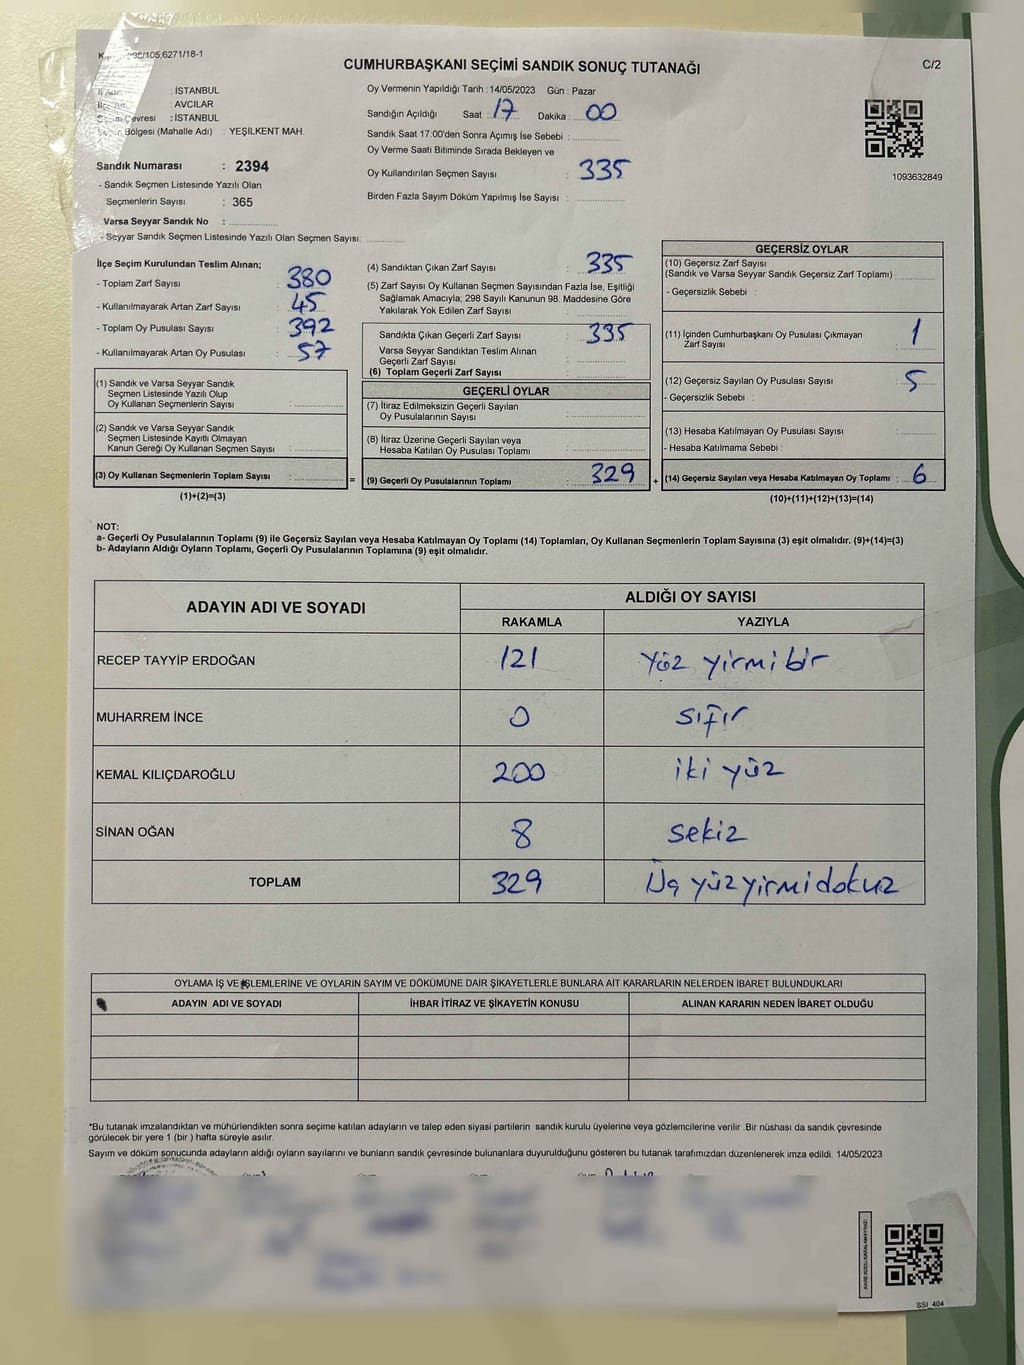 CUMHURBAŞKANI SEÇİMİ SANDIK SONUÇ TUTANAĞI
C/2
: İSTANBUL
: AVCILAR
: İSTANBUL
Bölgesi (Mahalle Adı) : YEŞİLKENT MAH.
Sandık Numarası : 2394
- Sandık Seçmen Listesinde Yazılı Olan
Seçmenlerin Sayısı : 365
Varsa Seyyar Sandık No :
- Seyyar Sandık Seçmen Listesinde Yazılı Olan Seçmen Sayısı:
Oy Vermenin Yapıldığı Tarih : 14/05/2023 Gün : Pazar
Sandığın Açıldığı Saat : 17 Dakika : 00
Sandık Saat 17:00'den Sonra Açımış İse Sebebi :
Oy Verme Saati Bitiminde Sırada Bekleyen ve
Oy Kullandırılan Seçmen Sayısı : 335
Birden Fazla Sayım Döküm Yapılmış İse Sayısı :
1093632849
İlçe Seçim Kurulundan Teslim Alınan;
- Toplam Zarf Sayısı : 380
- Kullanılmayarak Artan Zarf Sayısı : 45
- Toplam Oy Pusulası Sayısı : 392
- Kullanılmayarak Artan Oy Pusulası : 57
(1) Sandık ve Varsa Seyyar Sandık
Seçmen Listesinde Yazılı Olup
Oy Kullanan Seçmenlerin Sayısı :
(2) Sandık ve Varsa Seyyar Sandık
Seçmen Listesinde Kayıtlı Olmayan
Kanun Gereği Oy Kullanan Seçmen Sayısı :
(3) Oy Kullanan Seçmenlerin Toplam Sayısı :
(1)+(2)=(3)
(4) Sandıktan Çıkan Zarf Sayısı : 335
(5) Zarf Sayısı Oy Kullanan Seçmen Sayısından Fazla İse, Eşitliği
Sağlamak Amacıyla; 298 Sayılı Kanunun 98. Maddesine Göre
Yakılarak Yok Edilen Zarf Sayısı :
Sandıkta Çıkan Geçerli Zarf Sayısı : 335
Varsa Seyyar Sandıktan Teslim Alınan
Geçerli Zarf Sayısı :
(6) Toplam Geçerli Zarf Sayısı :
GEÇERLİ OYLAR
(7) İtiraz Edilmeksizin Geçerli Sayılan
Oy Pusulalarının Sayısı :
(8) İtiraz Üzerine Geçerli Sayılan veya
Hesaba Katılan Oy Pusulası Toplamı :
= (9) Geçerli Oy Pusulalarının Toplamı : 329
GEÇERSİZ OYLAR
(10) Geçersiz Zarf Sayısı
(Sandık ve Varsa Seyyar Sandık Geçersiz Zarf Toplamı) :
- Geçersizlik Sebebi :
(11) İçinden Cumhurbaşkanı Oy Pusulası Çıkmayan
Zarf Sayısı : 1
(12) Geçersiz Sayılan Oy Pusulası Sayısı : 5
- Geçersizlik Sebebi :
(13) Hesaba Katılmayan Oy Pusulası Sayısı :
- Hesaba Katılmama Sebebi :
+ (14) Geçersiz Sayılan veya Hesaba Katılmayan Oy Toplamı : 6
(10)+(11)+(12)+(13)=(14)
NOT:
a- Geçerli Oy Pusulalarının Toplamı (9) ile Geçersiz Sayılan veya Hesaba Katılmayan Oy Toplamı (14) Toplamları, Oy Kullanan Seçmenlerin Toplam Sayısına (3) eşit olmalıdır. (9)+(14)=(3)
b- Adayların Aldığı Oyların Toplamı, Geçerli Oy Pusulalarının Toplamına (9) eşit olmalıdır.
ADAYIN ADI VE SOYADI
ALDIĞI OY SAYISI
RAKAMLA YAZIYLA
RECEP TAYYİP ERDOĞAN 121 Yüz yirmi bir
MUHARREM İNCE 0 sıfır
KEMAL KILIÇDAROĞLU 200 iki yüz
SİNAN OĞAN 8 sekiz
TOPLAM 329 Üç yüz yirmi dokuz
OYLAMA İŞ VE İŞLEMLERİNE VE OYLARIN SAYIM VE DÖKÜMÜNE DAİR ŞİKAYETLERLE BUNLARA AİT KARARLARIN NELERDEN İBARET BULUNDUKLARI
ADAYIN ADI VE SOYADI İHBAR İTİRAZ VE ŞİKAYETİN KONUSU ALINAN KARARIN NEDEN İBARET OLDUĞU
*Bu tutanak imzalandıktan ve mühürlendikten sonra seçime katılan adayların ve talep eden siyasi partilerin sandık kurulu üyelerine veya gözlemcilerine verilir .Bir nüshası da sandık çevresinde
görülecek bir yere 1 (bir ) hafta süreyle asılır.
Sayım ve döküm sonucunda adayların aldığı oyların sayılarını ve bunların sandık çevresinde bulunanlara duyurulduğunu gösteren bu tutanak tarafımızdan düzenlenerek imza edildi. 14/05/2023
SSI_404